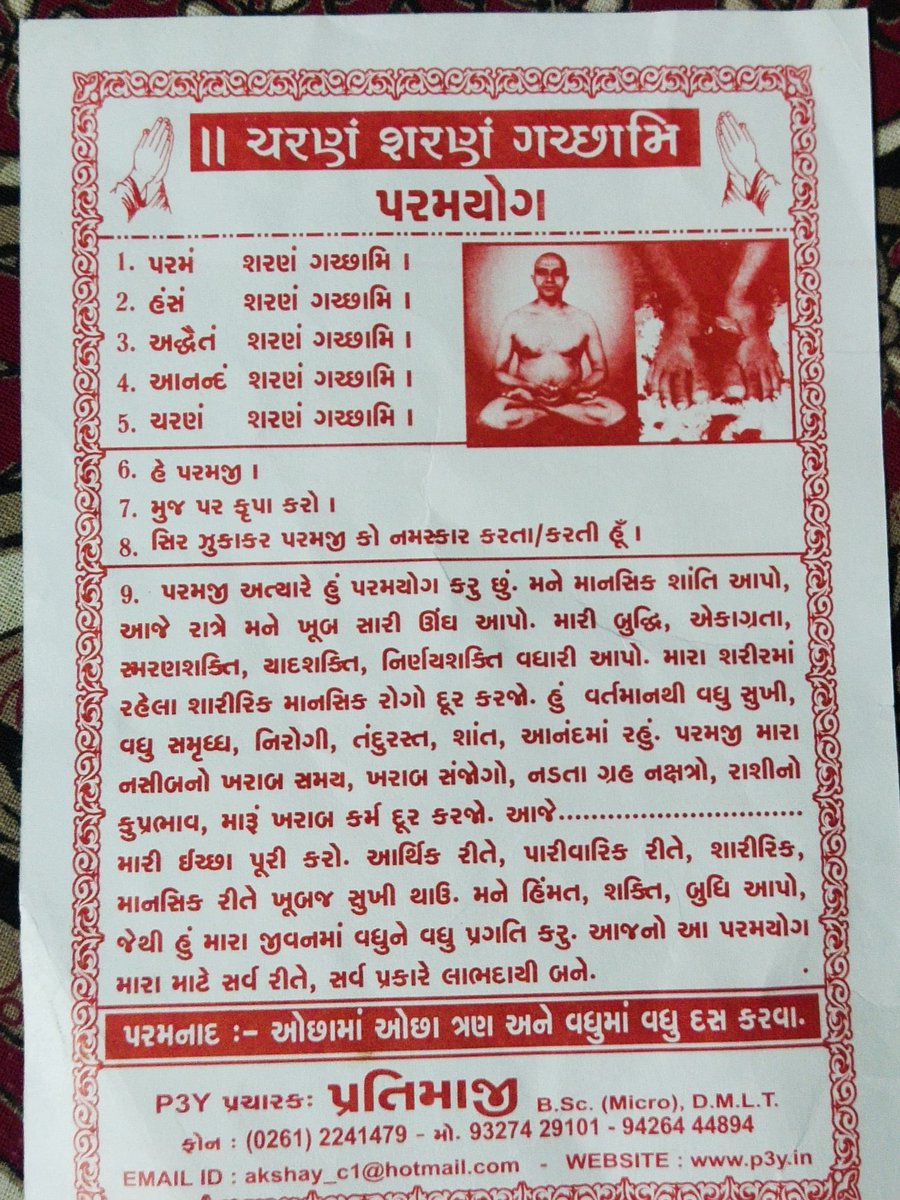 ॥ ચરણં શરણં ગચ્છામિ
પરમયોગ
1. પરમં શરણં ગચ્છામિ ।
2. હંસં શરણં ગચ્છામિ ।
3. અદ્વૈતં શરણં ગચ્છામિ ।
4. આનન્દં શરણં ગચ્છામિ ।
5. ચરણં શરણં ગચ્છામિ ।
6. હે પરમજી ।
7. મુજ પર કૃપા કરો ।
8. સિર ઝુકાકર પરમજી કો નમસ્કાર કરતા/કરતી હૂઁ ।
9. પરમજી અત્યારે હું પરમયોગ કરુ છું. મને માનસિક શાંતિ આપો,
આજે રાત્રે મને ખૂબ સારી ઊંઘ આપો. મારી બુદ્ધિ, એકાગ્રતા,
સ્મરણશક્તિ, યાદશક્તિ, નિર્ણયશક્તિ વધારી આપો. મારા શરીરમાં
રહેલા શારીરિક માનસિક રોગો દૂર કરજો. હું વર્તમાનથી વધુ સુખી,
વધુ સમૃધ્ધ, નિરોગી, તંદુરસ્ત, શાંત, આનંદમાં રહું. પરમજી મારા
નસીબનો ખરાબ સમય, ખરાબ સંજોગો, નડતા ગ્રહ નક્ષત્રો, રાશીનો
કુપ્રભાવ, મારૂં ખરાબ કર્મ દૂર કરજો. આજે............................
મારી ઈચ્છા પૂરી કરો. આર્થિક રીતે, પારીવારિક રીતે, શારીરિક,
માનસિક રીતે ખૂબજ સુખી થાઉ. મને હિંમત, શક્તિ, બુધિ આપો,
જેથી હું મારા જીવનમાં વધુને વધુ પ્રગતિ કરુ. આજનો આ પરમયોગ
મારા માટે સર્વ રીતે, સર્વ પ્રકારે લાભદાયી બને.
પરમનાદ :- ઓછામાં ઓછા ત્રણ અને વધુમાં વધુ દસ કરવા.
P3Y પ્રચારક: પ્રતિમાજી B.Sc. (Micro), D.M.L.T.
ફોન : (0261) 2241479 - મો. 93274 29101 - 94264 44894
EMAIL ID : akshay_c1@hotmail.com - WEBSITE : www.p3y.in